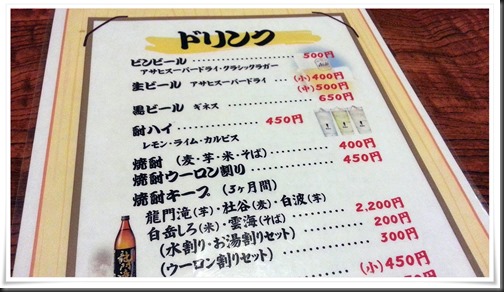 ドリンク
ビンビール ............ 500円
アサヒスーパードライ・クラシックラガー
生ビール アサヒスーパードライ ...... (小)400円
(中)500円
黒ビール ギネス ............ 650円
酎ハイ ............ 450円
レモン・ライム・カルピス
焼酎 (麦・芋・米・そば) ............ 400円
焼酎ウーロン割り ............ 450円
焼酎キープ (3ヶ月間)
龍門滝(芋)・杜谷(麦)・白波(芋)
白岳しろ(米)・雲海(そば) ...... 2,200円
(水割り・お湯割りセット) ...... 200円
(ウーロン割りセット) ............ 300円
(小)450円